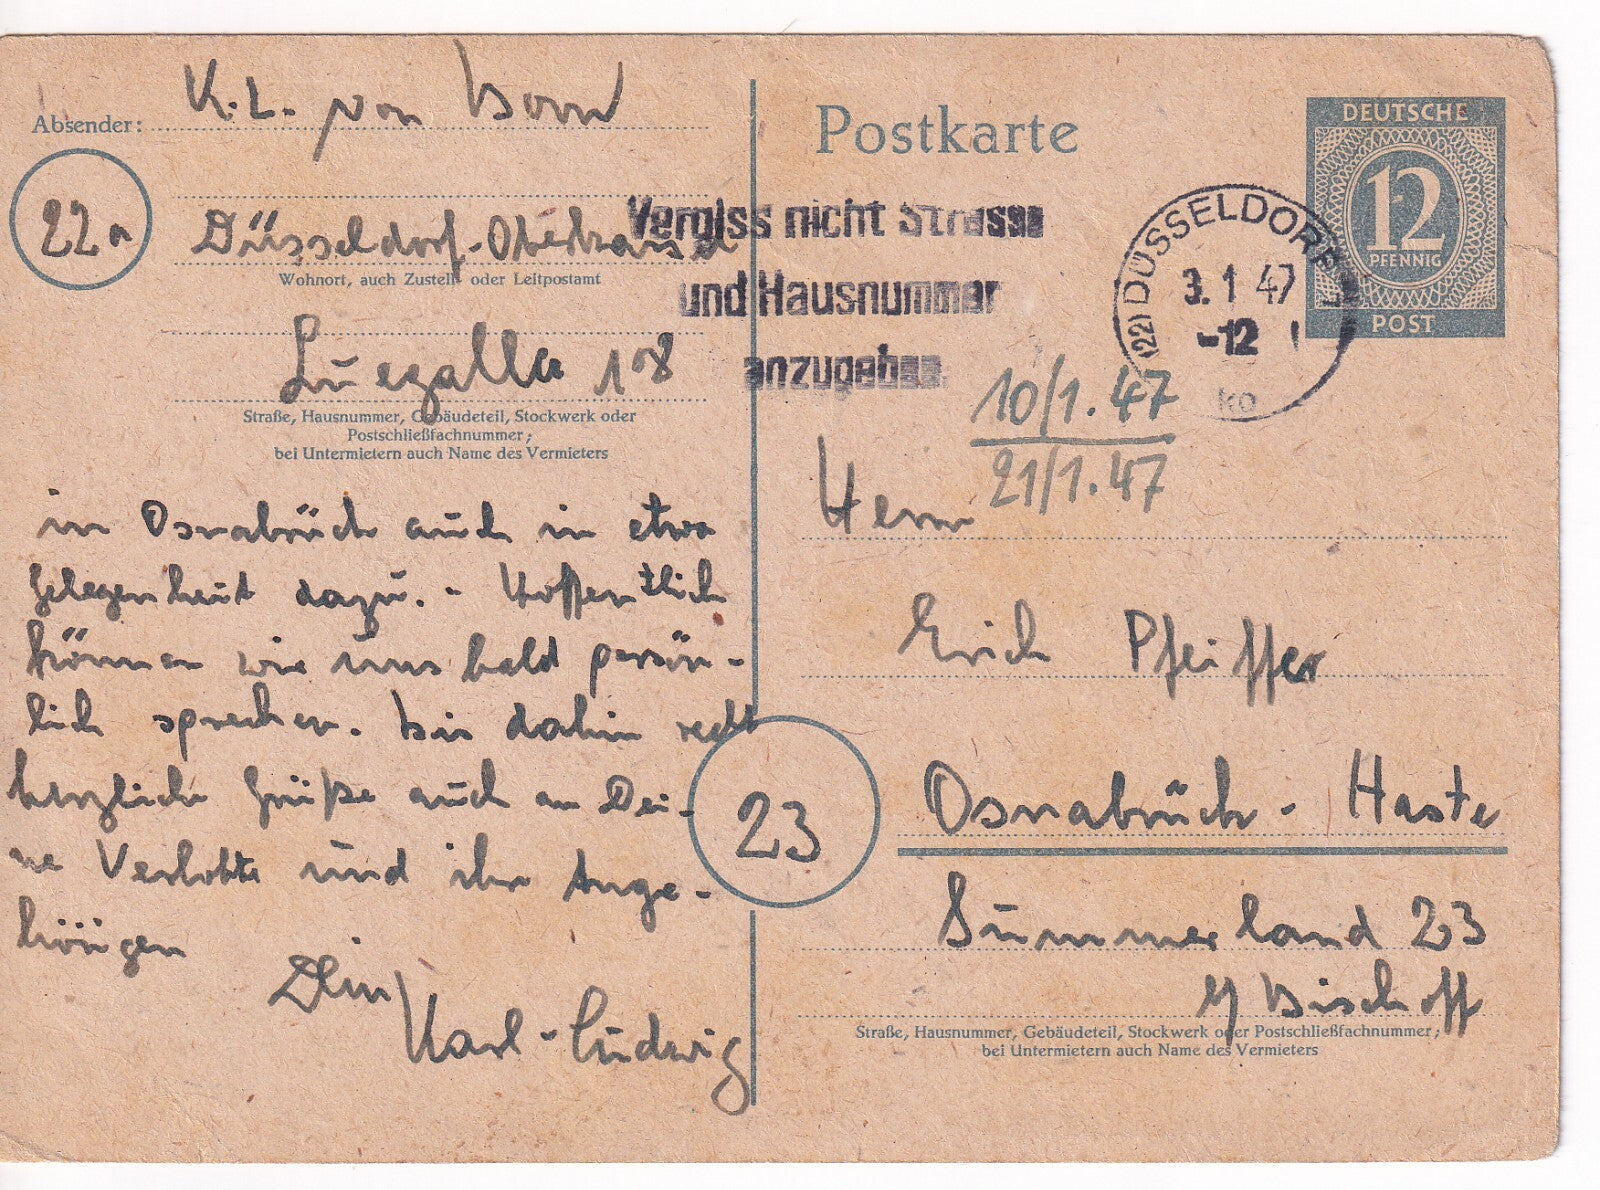 Absender: K. L. von Born
22a
Düsseldorf-Oberkassel
Wohnort, auch Zustell- oder Leitpostamt
Luegallee 108
Straße, Hausnummer, Gebäudeteil, Stockwerk oder
Postschließfachnummer;
bei Untermietern auch Name des Vermieters
in Osnabrück auch in etwa
Gelegenheit dazu. - Hoffentlich
können wir uns bald persön-
lich sprechen. Bis dahin recht
herzliche Grüße auch an Dei-
ne Verlobte und ihre Ange-
hörigen
Dein
Karl-Ludwig
Postkarte
DEUTSCHE
12
PFENNIG
POST
Vergiss nicht Strasse
und Hausnummer
anzugeben.
(22) DÜSSELDORF
3.1 47
-12
ko
10/1.47
21/1.47
Herrn
Erich Pfeiffer
23
Osnabrück-Haste
Summerland 23
b/ Bischoff
Straße, Hausnummer, Gebäudeteil, Stockwerk oder Postschließfachnummer;
bei Untermietern auch Name des Vermieters